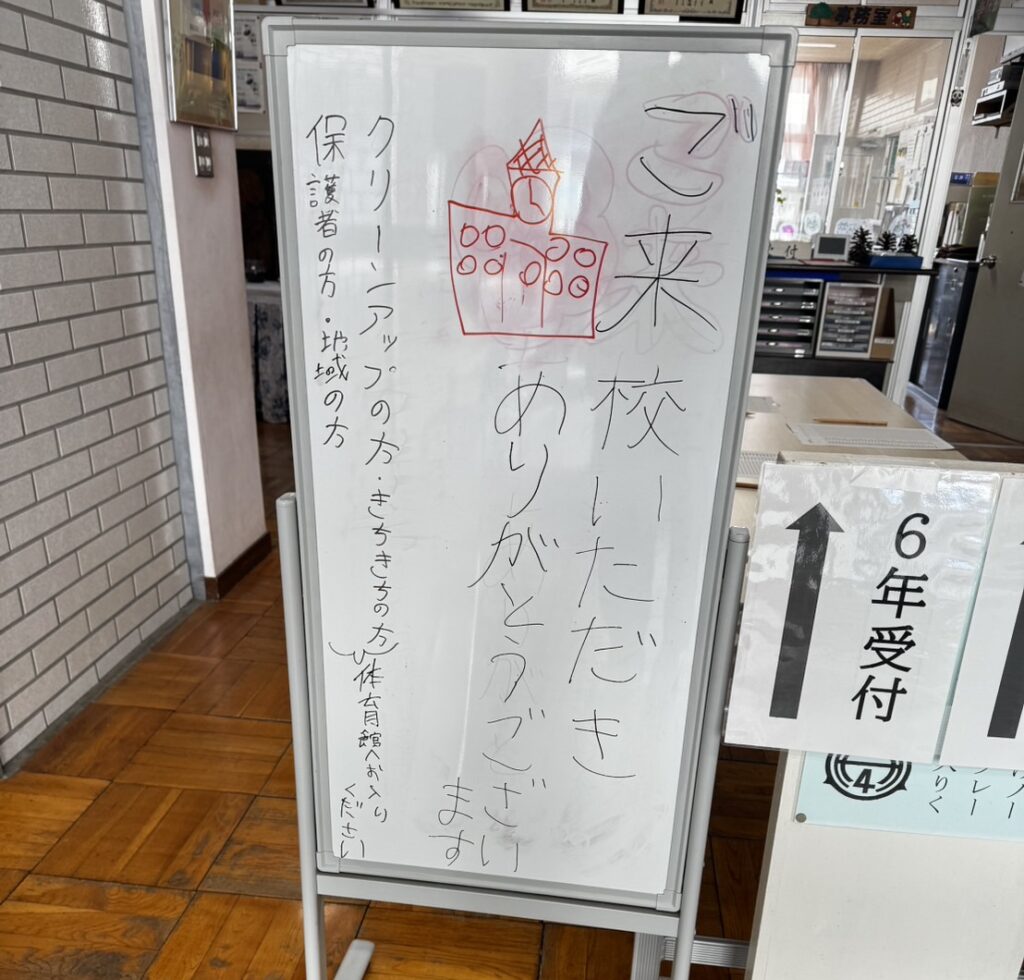 ご来校いただき
ありがとうござい
ます
クリーンアップの方・きちきちの方
保護者の方・地域の方
体育館へお入り
ください
事務室
6年受付
4